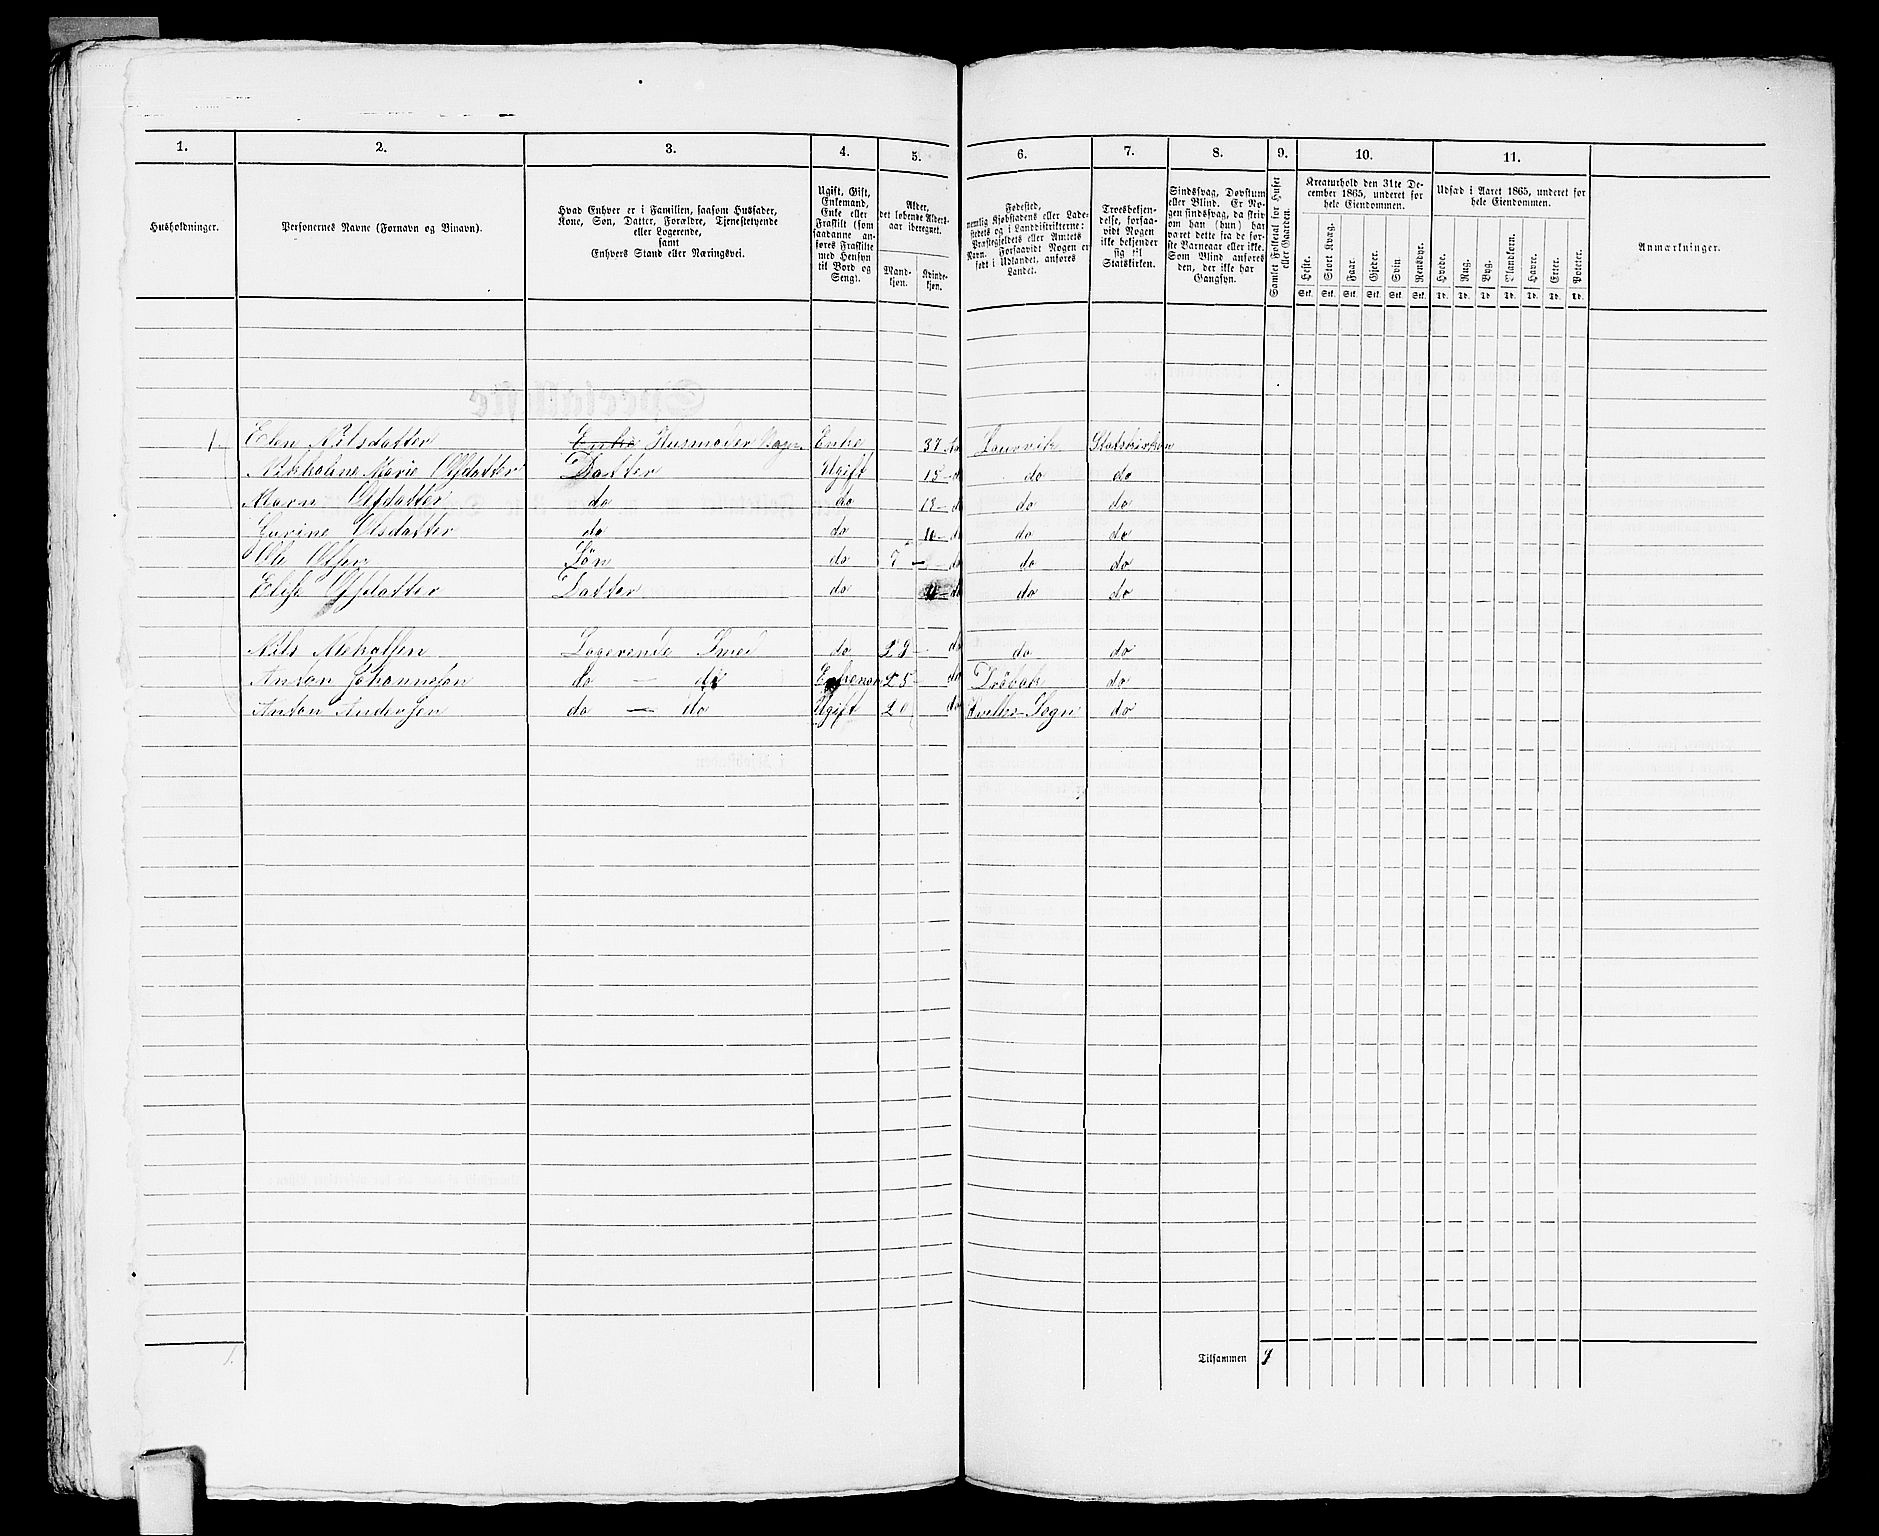 1. 2. 3. 4. 5. 6. 7. 8. 9. 10. 11.
Husholdninger.
Personernes Navne (Fornavn og Binavn).
Hvad Enhver er i Familien, saasom Husfader,
Kone, Søn, Datter, Forældre, Tjenestetyende
eller Logerende,
samt
Enhvers Stand eller Næringsvei.
Ugift, Gift,
Enkemand,
Enke eller
Fraskilt (som
saadanne an-
føres Fraskilte
med Hensyn
til Bord og
Seng).
Alder,
det løbende Alders-
aar iberegnet.
Mand-
kjøn.
Kvinde-
kjøn.
Fødested,
nemlig Kjøbstadens eller Lade-
stedets og i Landdistrikterne:
Præstegjeldets eller Amtets
Navn. Forsaavidt Nogen er
født i Udlandet, anføres
Landet.
Troesbekjen-
delse, forsaa-
vidt Nogen
ikke bekjender
sig til
Statskirken.
Sindssvag, Døvstum
eller Blind. Er No-
gen sindssvag, da skriv
om han (hun) har
været dette fra de før-
ste Barneaar eller ikke.
Som Blind anføres
den, der ikke har
Gangsyn.
Samlet Folketal for Huset
eller Gaarden.
Kreaturhold den 31te De-
cember 1865, underet for
hele Eiendommen.
Heste. Stort Kvæg. Faar. Gjeder. Svin. Rensdyr.
Stk. Stk. Stk. Stk. Stk. Stk.
Udsæd i Aaret 1865, underet for
hele Eiendommen.
Hvede. Rug. Byg. Blandkorn. Havre. Erter. Poteter.
Td. Td. Td. Td. Td. Td. Td.
Anmærkninger.
1. Elen Nilsdatter Enke Husmoder Enke 37 Laurvik Statskirken
Marie Olsdatter Datter Ugift 15 do do do
Maren Olsdatter do do 13 do do do
Olsdatter do do 10 do do do
Ole Olsen Søn do 7 do do do
Elise Olsdatter Datter do do do do
Nils Logerende Smed do do do do
Anton Johannesen do — do Enkemand 25 do Dröbak do
Anton Andersen do — do Ugift 20 do Sogn do
Tilsammen 9
1.